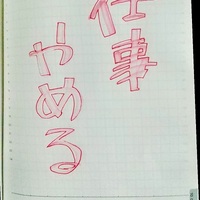 仕事
やめる